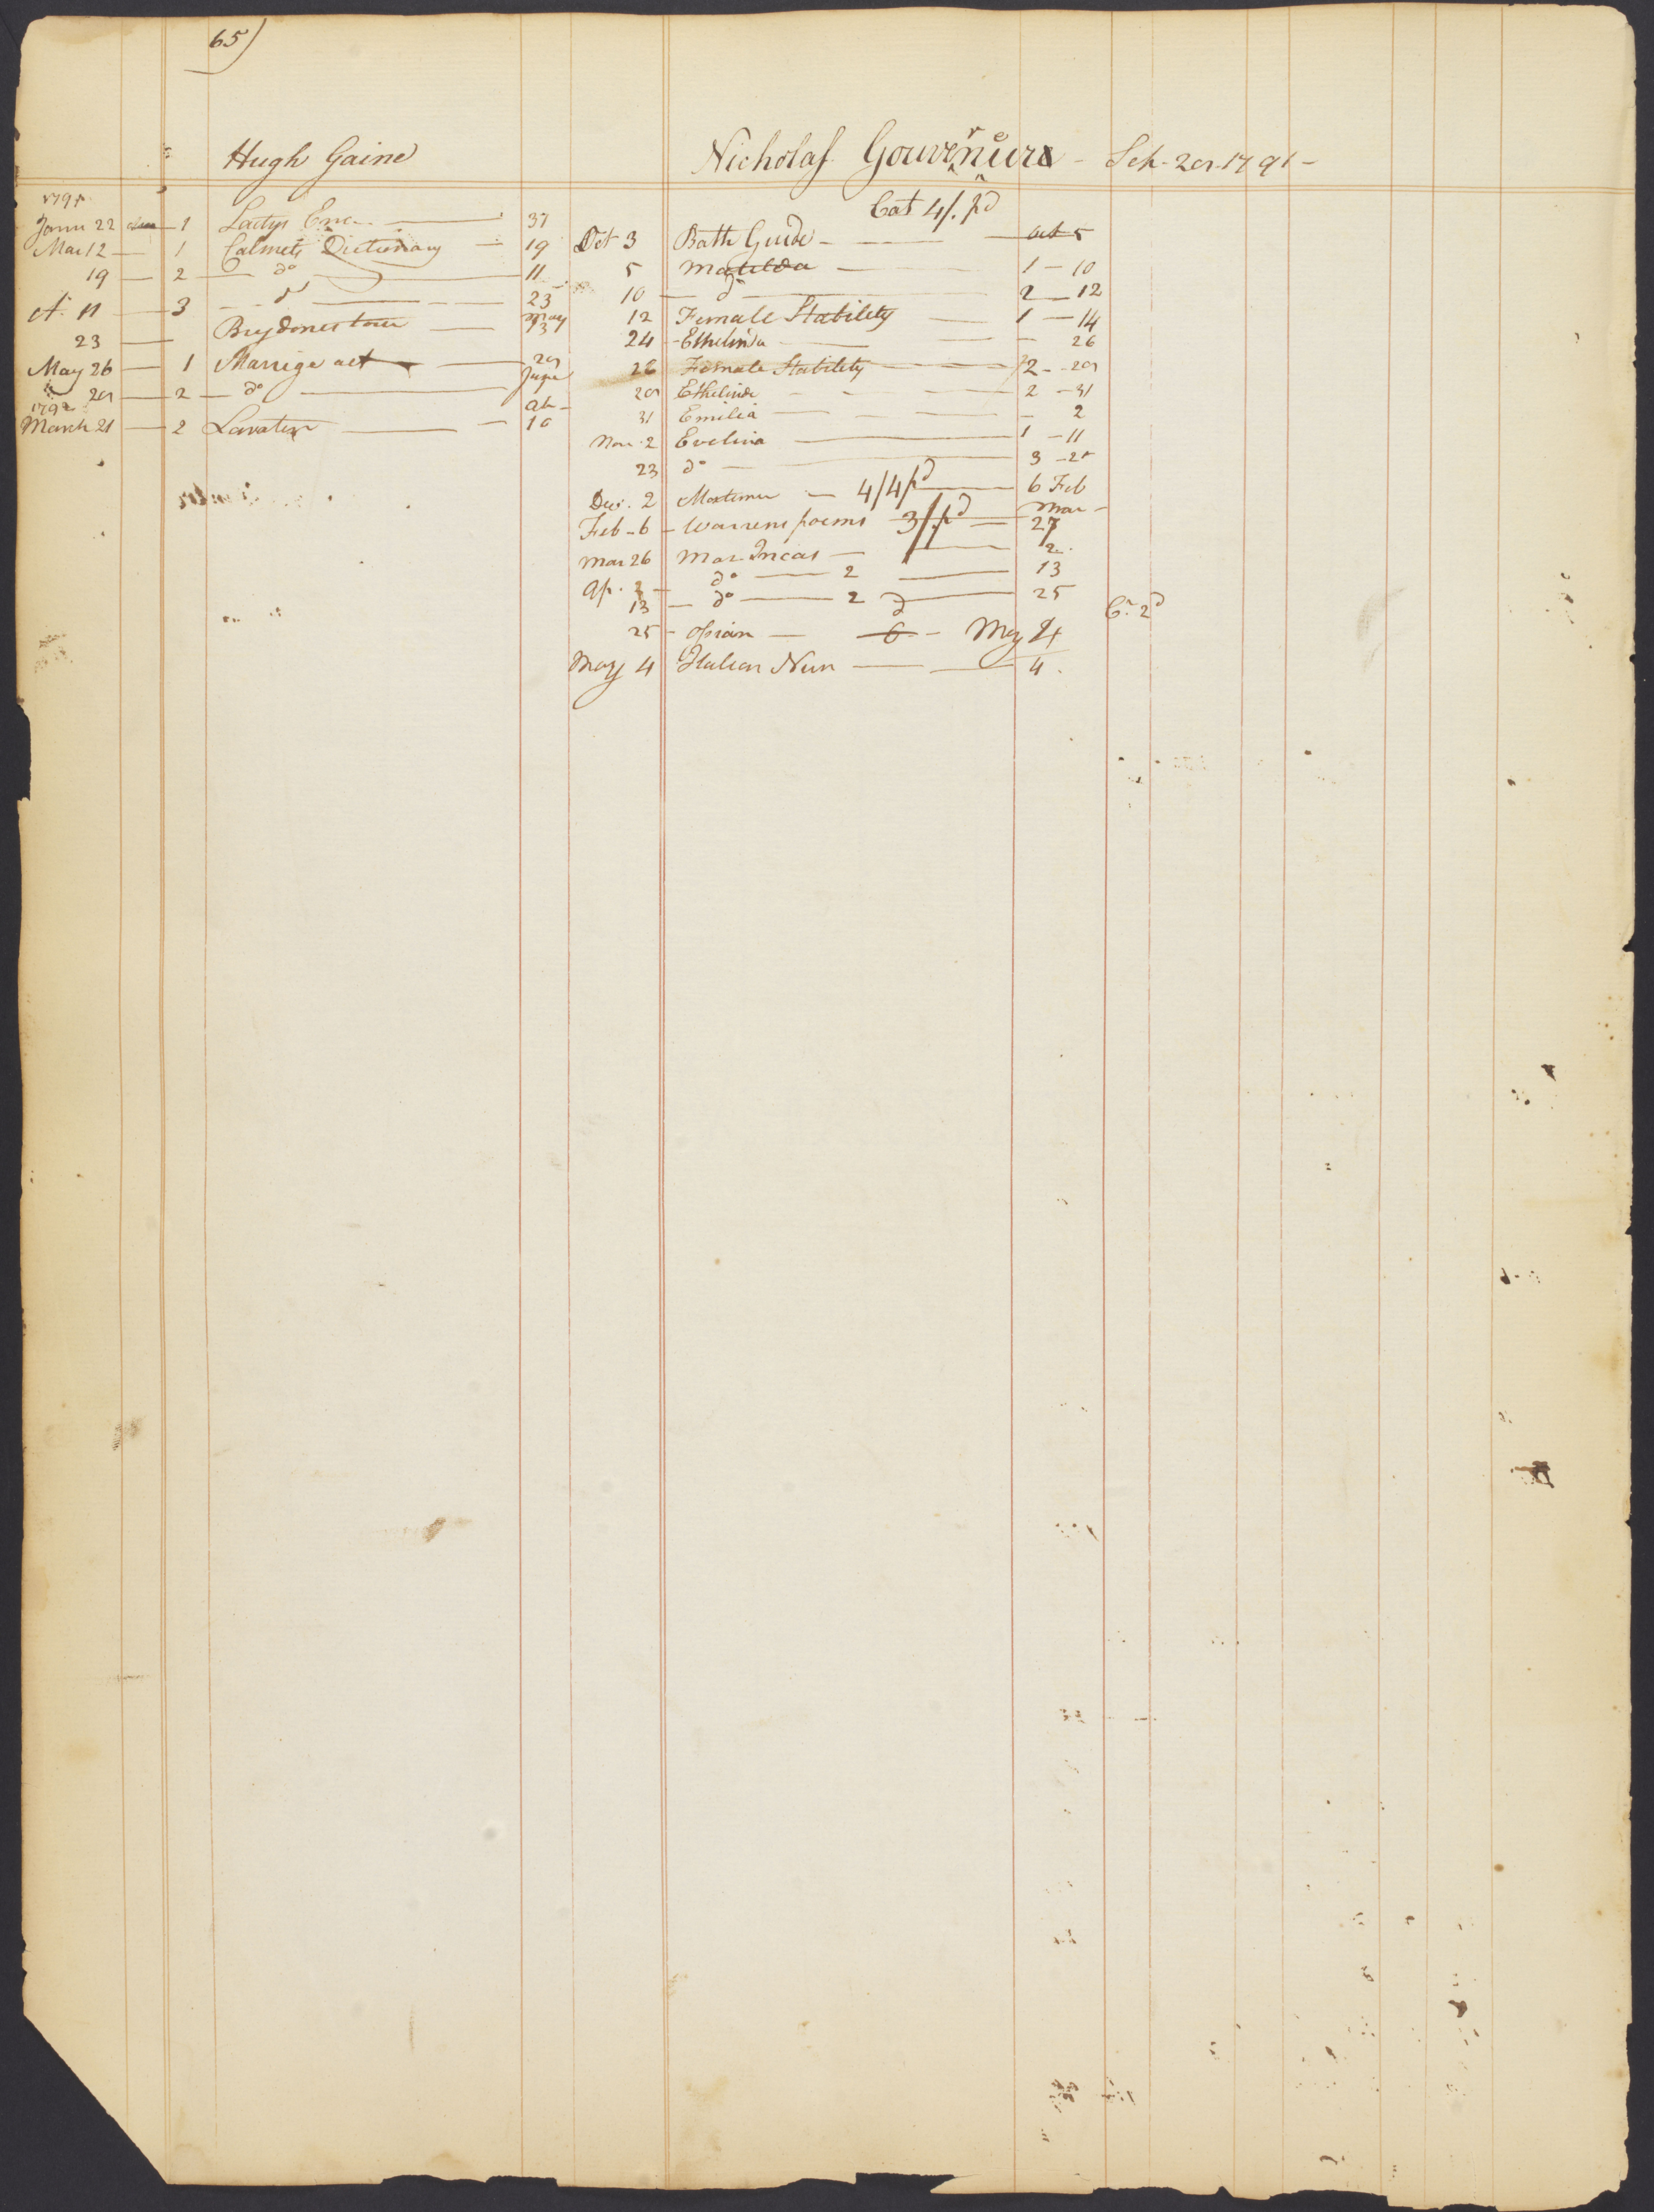 65)
Hugh Gaine
1791
Janu 22 1 Ladys Enc 31
Mar 12 1 Calmets Dictionary 19
19 2 do 11
A. 11 3 do 23
23 Brydones tour May 13
May 26 1 Marrige act 29
29 2 do June
1792
March 21 2 Lavater 10
Nicholas Gouverneur Sep. 29. 1791
Cat 4/. pd
Oct 3 Bath Guide Oct 5
5 Matilda 1 10
10 do 2 12
12 Female Stability 1 14
24 Ethelinda 26
26 Female Stability 2 29
29 Ethelinde 2 31
31 Emilia 2
Nov. 2 Evelina 1 11
23 do 3 25
Dec. 2 Mortimer 4/4 pd 6 Feb
Feb 6 Warrens poems 3/. pd Mar 27
Mar 26 Mar. Incas 2
Ap. 2 do 2 13
13 do 2 25
25 Ossian 6d May 4 Cr. 2d
May 4 Italian Nun 4